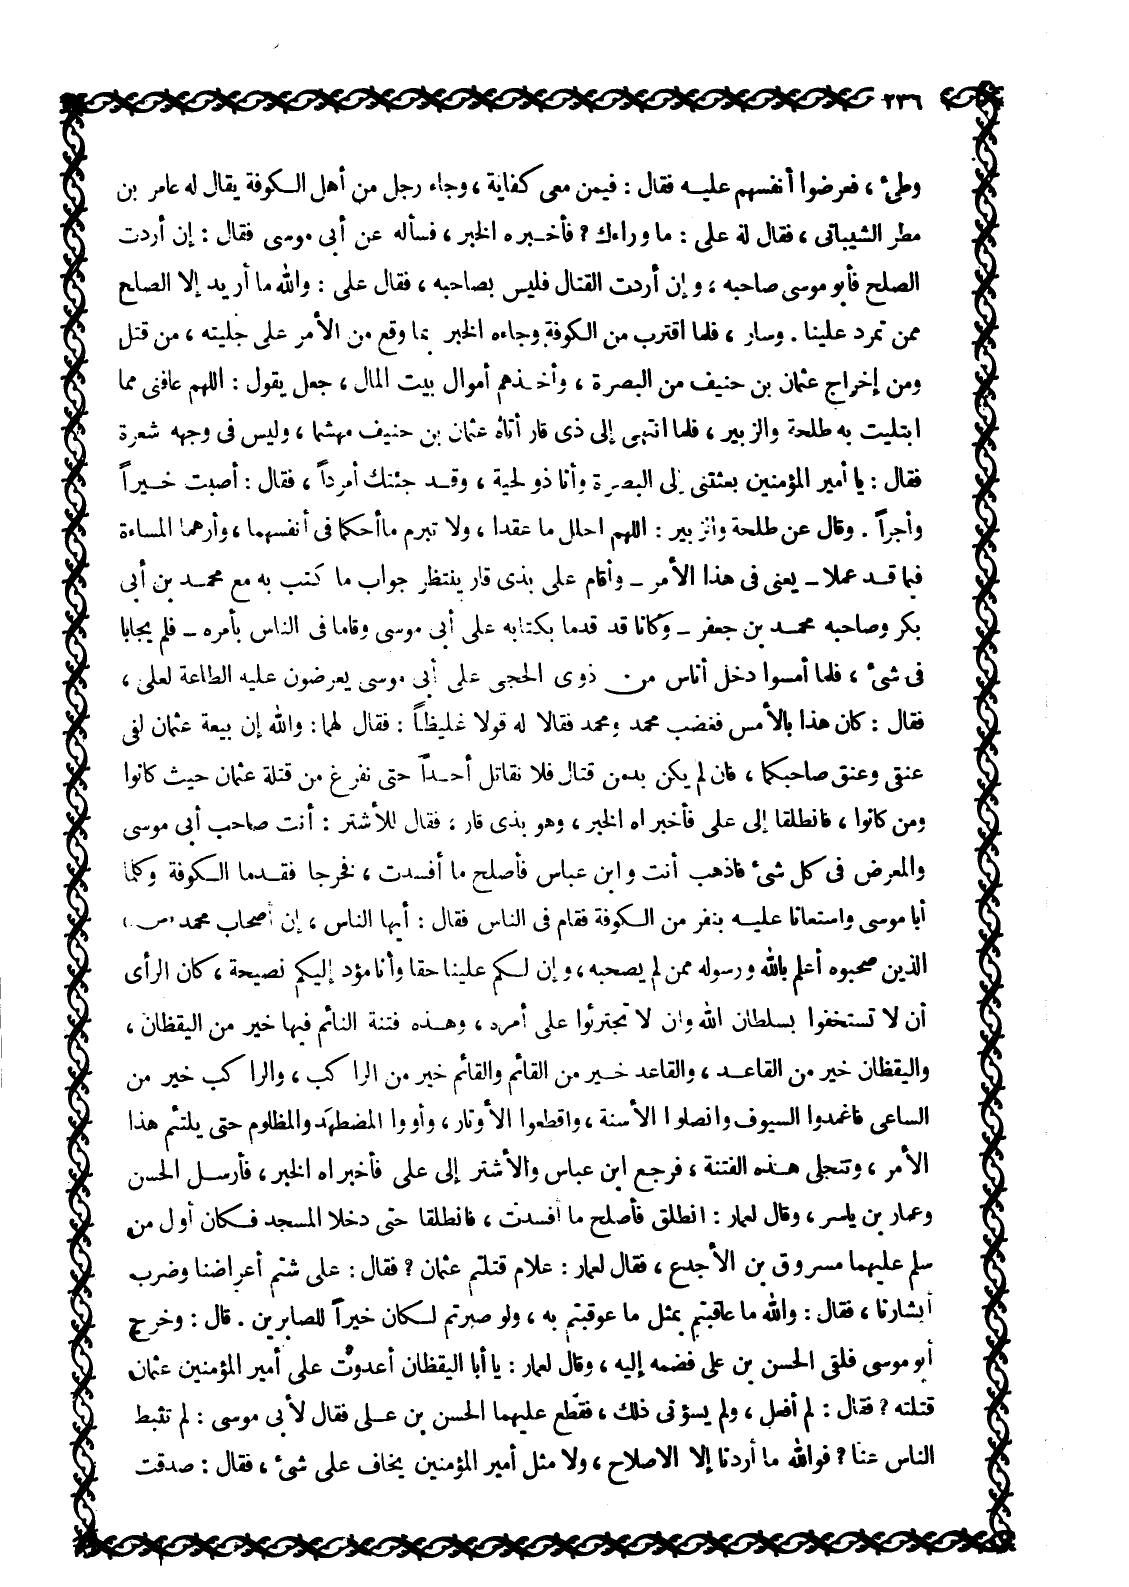 ٢٣٦
وطئ ، فعرضوا أنفسهم عليه فقال : فيمن معى كفاية ، وجاء رجل من أهل الكوفة يقال له عامر بن
مطر الشيبانى ، فقال له على : ما وراءك ? فأخبره الخبر ، فسأله عن أبى موسى فقال : إن أردت
الصلح فأبو موسى صاحبه ، وإن أردت القتال فليس بصاحبه ، فقال على : والله ما أريد إلا الصلح
ممن تمرد علينا . وسار ، فلما اقترب من الكوفة وجاءه الخبر بما وقع من الأمر على جليته ، من قتل
ومن إخراج عثمان بن حنيف من البصرة ، وأخذهم أموال بيت المال ، جعل يقول : اللهم عافنى مما
ابتليت به طلحة والزبير ، فلما انتهى إلى ذى قار أتاه عثمان بن حنيف مهشما ، وليس فى وجهه شعرة
فقال : يا أمير المؤمنين بعثتنى إلى البصرة وأنا ذو لحية ، وقد جئتك أمرداً ، فقال : أصبت خيراً
وأجراً . وقال عن طلحة والزبير : اللهم احلل ما عقدا ، ولا تبرم ما أحكما فى أنفسهما ، وأرهما المساءة
فيما قد عملا ــ يعنى فى هذا الأمر ــ وأقام على بذى قار ينتظر جواب ما كتب به مع محمد بن أبى
بكر وصاحبه محمد بن جعفر ــ وكانا قد قدما بكتابه على أبى موسى وقاما فى الناس بأمره ــ فلم يجابا
فى شئ ، فلما أمسوا دخل أناس من ذوى الحجى على أبى موسى يعرضون عليه الطاعة لعلى ،
فقال : كان هذا بالأمس فغضب محمد ومحمد فقالا له قولا غليظاً : فقال لهما : والله إن بيعة عثمان لفى
عنقى وعنق صاحبكما ، فان لم يكن بد من قتال فلا نقاتل أحداً حتى نفرغ من قتلة عثمان حيث كانوا
ومن كانوا ، فانطلقا إلى على فأخبراه الخبر ، وهو بذى قار ، فقال للأشتر : أنت صاحب أبى موسى
والمعرض فى كل شئ فاذهب أنت وابن عباس فأصلح ما أفسدت ، فخرجا فقدما الكوفة وكلما
أبا موسى واستعانا عليه بنفر من الكوفة فقام فى الناس فقال : أيها الناس ، إن أصحاب محمد (ص)
الذين صحبوه أعلم بالله ورسوله ممن لم يصحبه ، وإن لكم علينا حقا وأنا مؤد إليكم نصيحة ، كان الرأى
أن لا تستخفوا بسلطان الله وان لا تجترئوا على أمره ، وهذه فتنة النائم فيها خير من اليقظان ،
واليقظان خير من القاعد ، والقاعد خير من القائم والقائم خير من الراكب ، والراكب خير من
الساعى فاغمدوا السيوف وانصلوا الأسنة ، واقطعوا الأوتار ، وأووا المضطهد والمظلوم حتى يلتئم هذا
الأمر ، وتنجلى هذه الفتنة ، فرجع ابن عباس والأشتر إلى على فأخبراه الخبر ، فأرسل الحسن
وعمار بن ياسر ، وقال لعمار : انطلق فأصلح ما أفسدت ، فانطلقا حتى دخلا المسجد فكان أول من
سلم عليهما مسروق بن الأجدع ، فقال لعمار : علام قتلتم عثمان ? فقال : على شتم أعراضنا وضرب
أبشارنا ، فقال : والله ما عاقبتم بمثل ما عوقبتم به ، ولو صبرتم لكان خيراً للصابرين . قال : وخرج
أبو موسى فلقى الحسن بن على فضمه إليه ، وقال لعمار : يا أبا اليقظان أعدوت على أمير المؤمنين عثمان
قتلته ? فقال : لم أفعل ، ولم يسؤنى ذلك ، فقطع عليهما الحسن بن على فقال لأبى موسى : لم تثبط
الناس عنا ? فوالله ما أردنا إلا الاصلاح ، ولا مثل أمير المؤمنين يخاف على شئ ، فقال : صدقت